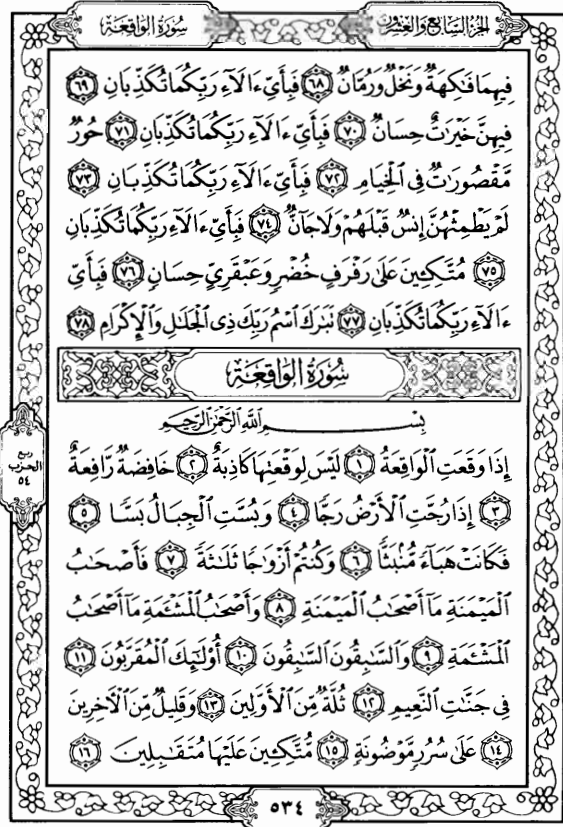 سُورَةُ الوَاقِعَةِ
الجُزْءُ السَّابِعُ وَالعِشْرُونَ
فِيهِمَا فَٰكِهَةٌ وَنَخْلٌ وَرُمَّانٌ ٦٨ فَبِأَيِّ ءَالَآءِ رَبِّكُمَا تُكَذِّبَانِ ٦٩
فِيهِنَّ خَيْرَٰتٌ حِسَانٌ ٧٠ فَبِأَيِّ ءَالَآءِ رَبِّكُمَا تُكَذِّبَانِ ٧١ حُورٌ
مَّقْصُورَٰتٌ فِى ٱلْخِيَامِ ٧٢ فَبِأَيِّ ءَالَآءِ رَبِّكُمَا تُكَذِّبَانِ ٧٣
لَمْ يَطْمِثْهُنَّ إِنسٌ قَبْلَهُمْ وَلَا جَآنٌّ ٧٤ فَبِأَيِّ ءَالَآءِ رَبِّكُمَا تُكَذِّبَانِ
٧٥ مُتَّكِـِٔينَ عَلَىٰ رَفْرَفٍ خُضْرٍ وَعَبْقَرِىٍّ حِسَانٍ ٧٦ فَبِأَيِّ
ءَالَآءِ رَبِّكُمَا تُكَذِّبَانِ ٧٧ تَبَٰرَكَ ٱسْمُ رَبِّكَ ذِى ٱلْجَلَٰلِ وَٱلْإِكْرَامِ ٧٨
سُورَةُ الوَاقِعَةِ
بِسْمِ ٱللَّهِ ٱلرَّحْمَٰنِ ٱلرَّحِيمِ
إِذَا وَقَعَتِ ٱلْوَاقِعَةُ ١ لَيْسَ لِوَقْعَتِهَا كَاذِبَةٌ ٢ خَافِضَةٌ رَّافِعَةٌ
٣ إِذَا رُجَّتِ ٱلْأَرْضُ رَجًّا ٤ وَبُسَّتِ ٱلْجِبَالُ بَسًّا ٥
فَكَانَتْ هَبَآءً مُّنۢبَثًّا ٦ وَكُنتُمْ أَزْوَٰجًا ثَلَٰثَةً ٧ فَأَصْحَٰبُ
ٱلْمَيْمَنَةِ مَآ أَصْحَٰبُ ٱلْمَيْمَنَةِ ٨ وَأَصْحَٰبُ ٱلْمَشْـَٔمَةِ مَآ أَصْحَٰبُ
ٱلْمَشْـَٔمَةِ ٩ وَٱلسَّٰبِقُونَ ٱلسَّٰبِقُونَ ١٠ أُو۟لَٰٓئِكَ ٱلْمُقَرَّبُونَ ١١
فِى جَنَّٰتِ ٱلنَّعِيمِ ١٢ ثُلَّةٌ مِّنَ ٱلْأَوَّلِينَ ١٣ وَقَلِيلٌ مِّنَ ٱلْءَاخِرِينَ
١٤ عَلَىٰ سُرُرٍ مَّوْضُونَةٍ ١٥ مُّتَّكِـِٔينَ عَلَيْهَا مُتَقَٰبِلِينَ ١٦
ربع
الحزب
٥٤
٥٣٤